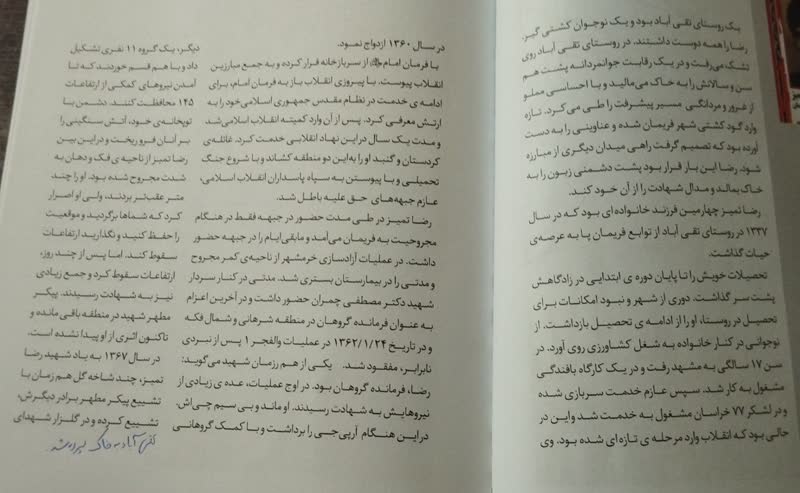 یک روستای نقی آباد بود و یک نوجوان کشتی گیر.
رضا را همه دوست داشتند. در روستای نقی آباد روی
تشک می‌رفت و در یک رقابت جوانمردانه پشت هم
سن و سالانش را به خاک می‌مالید و با احساسی مملو
از غرور و مردانگی مسیر پیشرفت را طی می‌کرد. تازه
وارد گود کشتی شهر فریمان شده و عناوینی را به دست
آورده بود که تصمیم گرفت راهی میدان دیگری از مبارزه
شود. رضا این بار قرار بود پشت دشمنی زبون را به
خاک بمالد و مدال شهادت را از آن خود کند.
رضا تمیز چهارمین فرزند خانواده‌ای بود که در سال
۱۳۳۷ در روستای نقی آباد از توابع فریمان پا به عرصه‌ی
حیات گذاشت.
تحصیلات خویش را تا پایان دوره ی ابتدایی در زادگاهش
پشت سر گذاشت. دوری از شهر و نبود امکانات برای
تحصیل در روستا، او را از ادامه ی تحصیل بازداشت. از
نوجوانی در کنار خانواده به شغل کشاورزی روی آورد. در
سن ۱۷ سالگی به مشهد رفت و در یک کارگاه بافندگی
مشغول به کار شد. سپس عازم خدمت سربازی شده
و در لشکر ۷۷ خراسان مشغول به خدمت شد و این در
حالی بود که انقلاب وارد مرحله ی تازه‌ای شده بود. وی
در سال ۱۳۶۰ ازدواج نمود.
با فرمان امام از سربازخانه فرار کرده و به جمع مبارزین
انقلاب پیوست. با پیروزی انقلاب باز به فرمان امام، برای
ادامه ی خدمت در نظام مقدس جمهوری اسلامی خود را به
ارتش معرفی کرد. پس از آن وارد کمیته انقلاب اسلامی شد
و مدت یک سال در این نهاد انقلابی خدمت کرد. غائله‌ی
کردستان و گنبد او را به این دو منطقه کشاند و با شروع جنگ
تحمیلی و با پیوستن به سپاه پاسداران انقلاب اسلامی،
عازم جبهه‌های حق علیه باطل شد.
رضا تمیز در طی مدت حضور در جبهه فقط در هنگام
مجروحیت به فریمان می‌آمد و مابقی ایام را در جبهه حضور
داشت. در عملیات آزادسازی خرمشهر از ناحیه‌ی کمر مجروح
و مدتی را در بیمارستان بستری شد. مدتی در کنار سردار
شهید دکتر مصطفی چمران حضور داشت و در آخرین اعزام
به عنوان فرمانده گروهان در منطقه شرهانی و شمال فکه
و در تاریخ ۱۳۶۲/۱/۲۴ در عملیات والفجر ۱ پس از نبردی
نابرابر، مفقود شد. یکی از هم رزمان شهید می‌گوید:
رضا، فرمانده گروهان بود. در اوج عملیات، عده ی زیادی از
نیروهایش به شهادت رسیدند. او ماند و بی سیم چی‌اش.
در این هنگام آرپی‌جی را برداشت و با کمک گروهانی
دیگر، یک گروه ۱۱ نفری تشکیل
داد و با هم قسم خوردند که تا
آمدن نیروهای کمکی از ارتفاعات
۱۴۵ محافظت کنند. دشمن با
توپخانه‌ی خود، آتش سنگینی را
بر آنان فرو ریخت و در این بین
رضا تمیز از ناحیه ی فک و دهان به
شدت مجروح شده بود. او را چند
متر عقب‌تر بردند، ولی او اصرار
کرد که شماها برگردید و موقعیت
را حفظ کنید و نگذارید ارتفاعات
سقوط کند. اما پس از چند روز،
ارتفاعات سقوط کرد و جمع زیادی
نیز به شهادت رسیدند. پیکر
مطهر شهید در منطقه باقی مانده و
تاکنون اثری از او پیدا نشده است.
در سال ۱۳۶۷ به یاد شهید رضا
تمیز، چند شاخه گل هم زمان با
تشییع پیکر مطهر برادر دیگرش،
تشییع کرده و در گلزار شهدای
نقی آباد به خاک سپرده شد